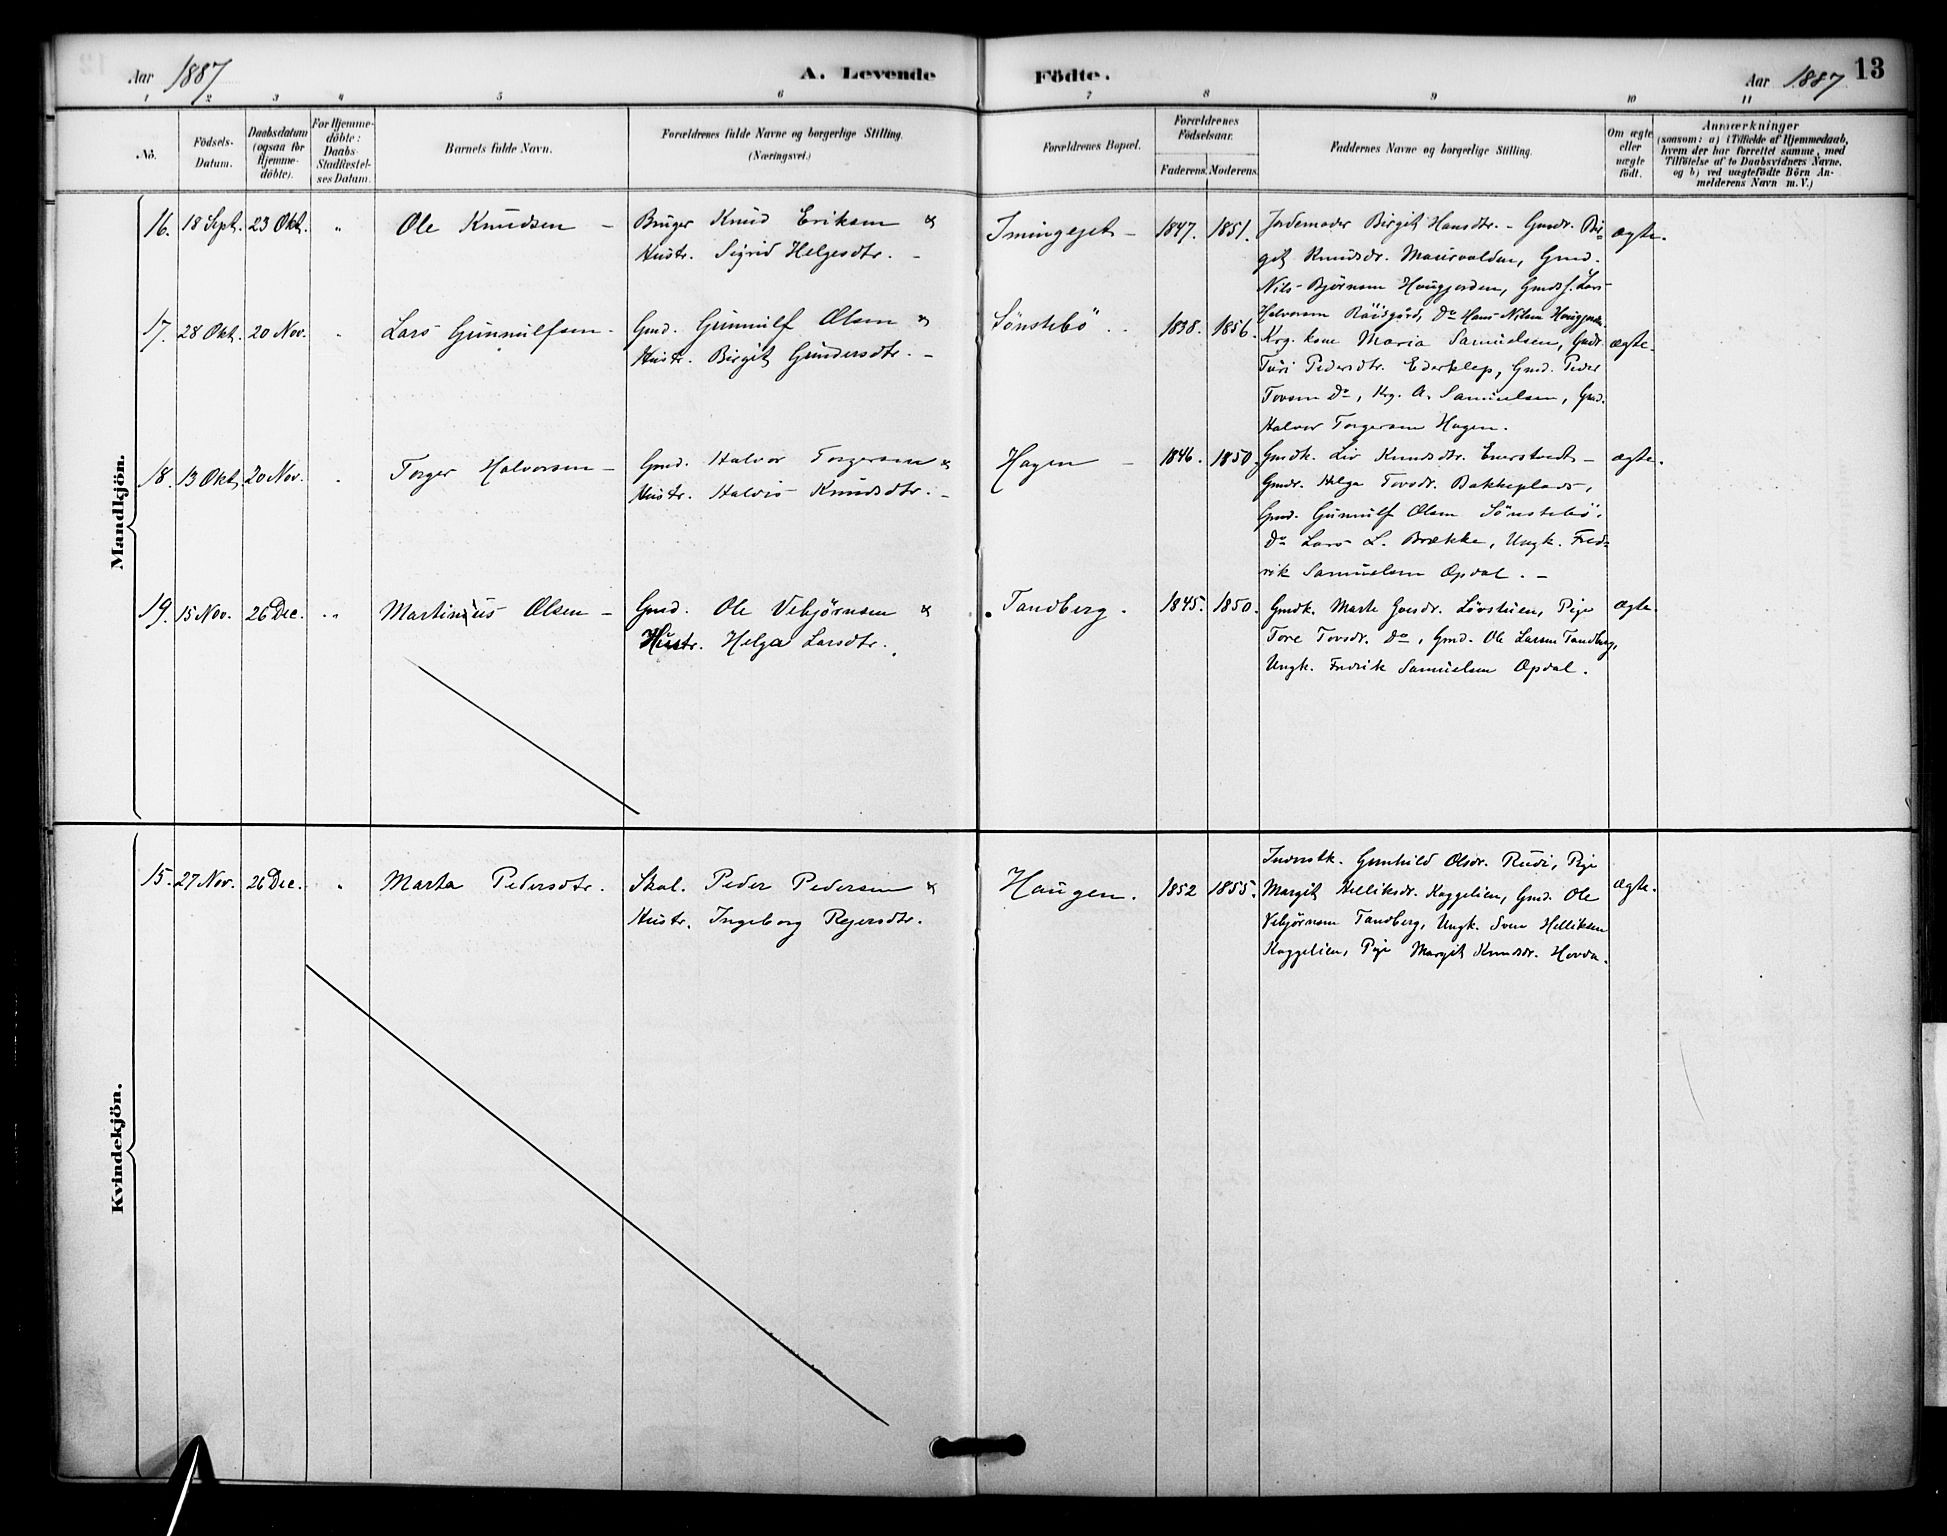 Aar 1887
A. Levende Födte.
Aar 1887 13
1 2 3 4 5 6 7 8 9 10 11
No.
Födsels-
Datum.
Daabsdatum
(ogsaa for
Hjemme-
döbte).
For Hjemme-
döbte:
Daabs-
Stadfæstel-
ses Datum.
Barnets fulde Navn.
Forældrenes fulde Navne og borgerlige Stilling.
(Næringsvei.)
Forældrenes Bopæl.
Forældrenes
Födselsaar.
Faderens. Moderens.
Faddernes Navne og borgerlige Stilling.
Om ægte
eller
uægte
födt.
Anmærkninger
(saasom: a) i Tilfælde af Hjemmedaab,
hvem der har forrettet samme, med
Tilföielse af to Daabsvidners Navne,
og b) ved uægtefödte Börn An-
melderens Navn m. V.)
Mandkjön.
16. 18 Sept. 23 Okt. " Ole Knudsen –
Bruger Knud Eriksen &
Hustr. Sigrid Helgesdtr. –
Imingejet – 1847. 1851.
Jordemoder Birgit Hansdtr. – Gmdr. Bir=
git Knudsdr. Maurvolden, Gmd.
Nils Bjørnsen Hougjorden, Gmdsf. Lars
Halvorsen Röisgård, Do Hans Nilsen Hougjorden.
ægte.
17. 28 Okt. 20 Nov. " Lars Gunnulfsen –
Gmd. Gunnulf Olsen &
Hustr. Birgit Gundersdtr. –
Sönstebö . . 1838. 1856.
Krg. kone Maria Samuelsen, Gmdr.
Turi Pedersdtr. Ederklep, Gmd. Peder
Tovsen Do, Krg. A. Samuelsen, Gmd.
Halvor Torgersen Hagen.
ægte.
18. 13 Okt. 20 Nov. " Torger Halvorsen –
Gmd. Halvor Torgersen &
Hustr. Halvis Knudsdtr. –
Hagen – 1846. 1850.
Gmdk. Liv Knudsdtr. Enerstvedt –
Gmdr. Helga Tovsdr. Bakkeplads,
Gmd. Gunnulf Olsen Sönstebö,
Do Lars L. Brække, Ungk. Fred=
rik Samuelsen Opdal. –
ægte.
19. 15 Nov. 26 Dec. " Martinius Olsen –
Gmd. Ole Vebjørnsen &
Hustr. Helga Larsdtr.
Tandberg. 1845. 1850.
Gmdk. Marte Gvesdr. Lövstuen, Pige
Tore Tovsdr. Do, Gmd. Ole Larsen Tandberg,
Ungk. Fredrik Samuelsen Opdal.
ægte.
Kvindekjön.
15. 27 Nov. 26 Dec. " Marta Pedersdtr.
Skol. Peder Pedersen &
Hustr. Ingeborg Rejersdtr.
Haugen. 1852 1855.
Inderstk. Gunhild Olsdr. Rudi, Pige
Margit Helliksdr. Kaggelien, Gmd. Ole
Vebjørnsen Tandberg, Ungk. Sven Helliksen
Kaggelien, Pige Margit Knudsdr. Hovda.
ægte.